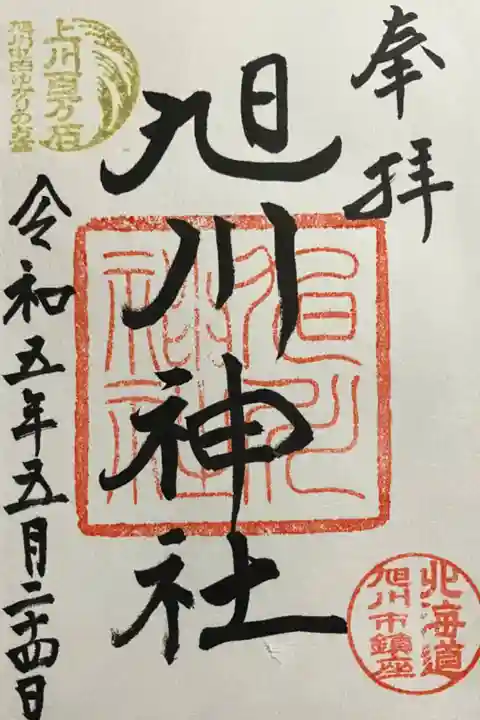 奉拝
旭川神社
令和五年五月二十四日
上川百万石
旭川神社
北海道
旭川市鎮座